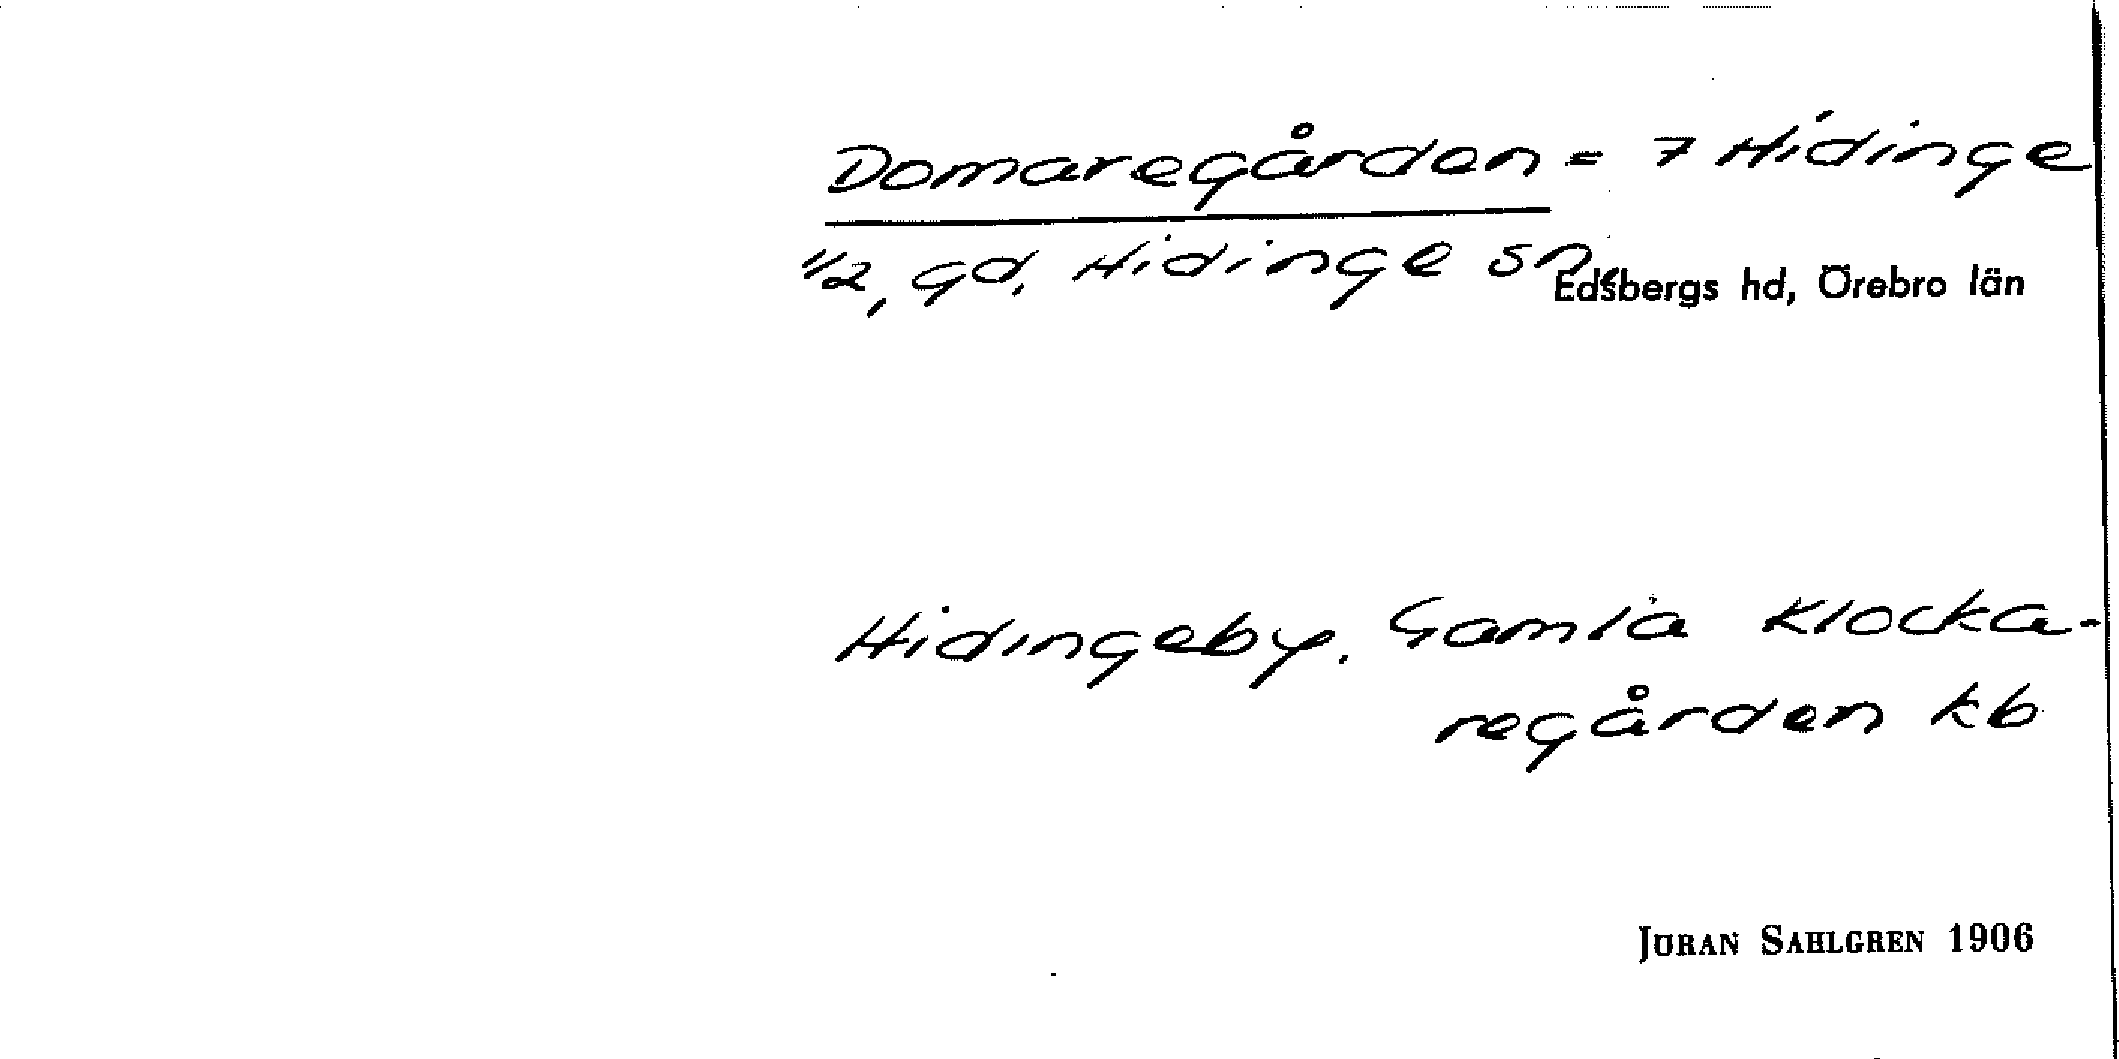 Domaregården = 7 Hidinge
1/2, gd. Hidinge sn,
Edsbergs hd, Örebro län
Hidingeby. Gamla Klocka-
regården kb
JÖRAN SAHLGREN 1906